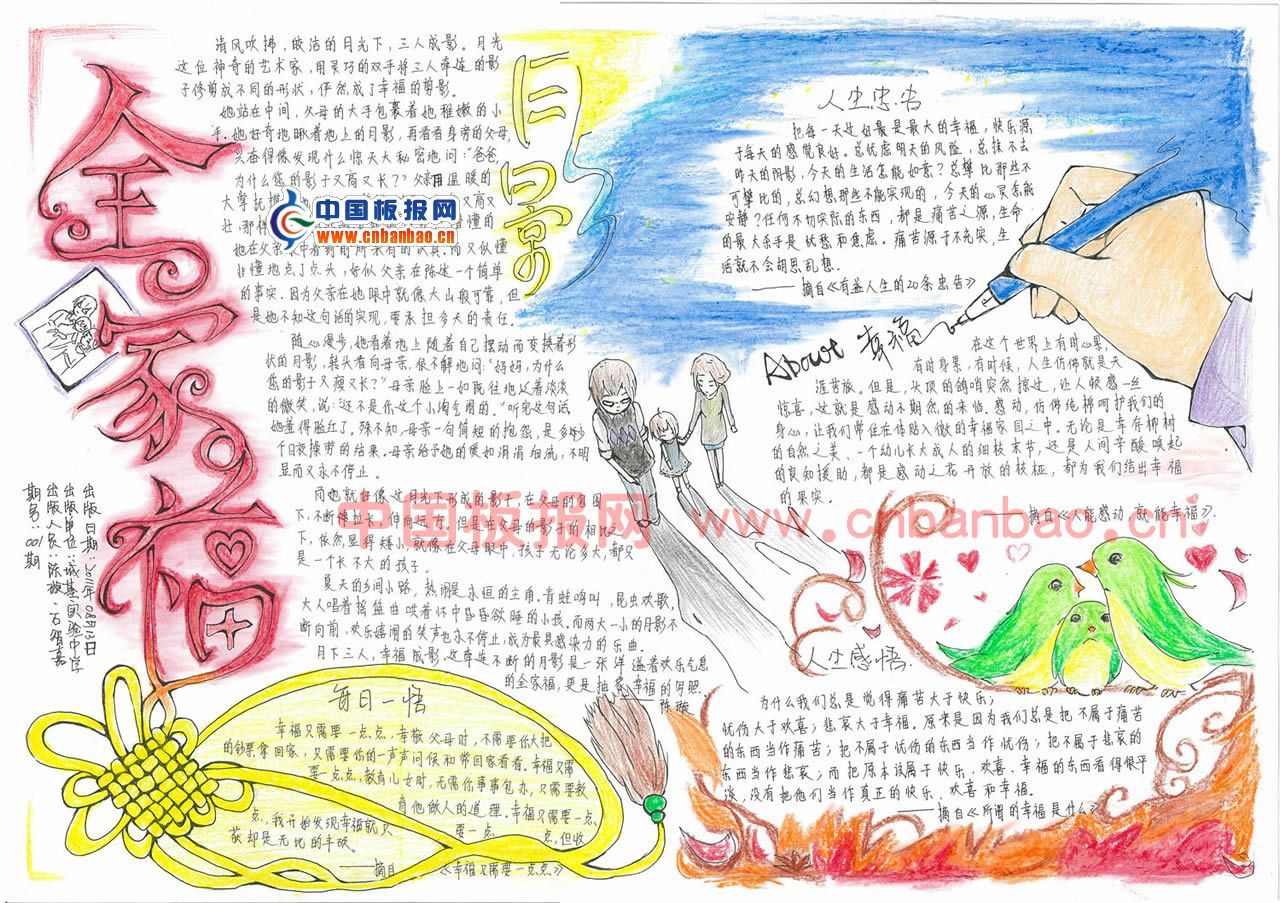 全家福
月影
清风吹拂，皎洁的月光下，三人成影。月光
这位神奇的艺术家，用灵巧的双手将三人牵连的影
子修剪成不同的形状，俨然成了幸福的剪影。
她站在中间，父母的大手包裹着她稚嫩的小
手。她好奇地瞅着地上的月影，再看看身旁的父母，
兴奋得像发现什么惊天大秘密地问："爸爸，
为什么您的影子又高又长？"父亲用温暖的
大掌抚
又高又
壮，那样
懂的
她在父亲
中看到的所未有的认真。而又似懂
非懂地点了点头，好似父亲在陈述一个简单
的事实。因为父亲在她眼中就像大山般可靠，但
是她不知这句话的实现，要承担多大的责任。
随心漫步，她看着地上随着自己摆动而变换着形
状的月影，转头看向母亲，很不解地问："妈妈，为什么
您的影子又瘦又长？"母亲脸上一如既往地泛着淡淡
的微笑，说："还不是你这个小淘气闹的。"听完这句话，
她羞得脸红了。殊不知，母亲一句简短的抱怨，是多少
个日夜操劳的结果。母亲给予她的爱如涓涓细流，不明
显而又永不停止。
而她就好像这月光下形成的影子，在父母的包围
下，不断被拉长，伸向远方。但是在父母的影子的相比之
下，依然显得矮小，就像在父母眼中，孩子无论多大，都只
是一个长不大的孩子。
夏天的乡间小路，热闹是永恒的主角。青蛙鸣叫，昆虫欢歌，
大人唱着摇篮曲哄着怀中昏昏欲睡的小孩。而两大一小的月影不
断向前，欢乐嬉闹的笑声也永不停止，成为最具感染力的乐曲。
月下三人，幸福成影。这牵连不断的月影是一张洋溢着欢乐气息
的全家福，更是抽象幸福的写照。
——陈璇
出版日期：2011年08月13日
出版单位：城基实验中学
出版人员：陈璇、
期号：001期
每日一悟
幸福只需要一点点，孝敬父母时，不需要你大把
的钞票拿回家，只需要你的一声声问候和常回家看看。幸福只需
要一点点，教育儿女时，无需你事事包办，只需要教
育他做人的道理。幸福只需要一点
点，我开始发现幸福就只
要一点
点，但收
获却是无比的丰硕。
——摘自
《幸福只需要一点点》
人生忠告
把每一天过好最是最大的幸福，快乐源
于每天的感觉良好。总忧虑明天的风险，总抹不去
昨天的阴影，今天的生活怎能如意？总攀比那些不
可攀比的，总幻想那些不能实现的，今天的心灵怎能
安静？任何不切实际的东西，都是痛苦之源，生命
的最大杀手是忧愁和焦虑。痛苦源于不充实，生
活就不会胡思乱想。
——摘自《有益人生的20条忠告》
About 幸福
在这个世界上有时心累，
有时身累，有时候，人生仿佛就是天
涯苦旅。但是，头顶的鸽哨突然掠过，让人顿感一丝
惊喜，这就是感动不期然的来临。感动，仿佛纯棉呵护我们的
身心，让我们常住在体贴入微的幸福家园之中。无论是草房柳树
的自然之美、一个幼儿长大成人的细枝末节，还是人间辛酸唤起
的良知援助，都是感动之花开放的枝桠，都为我们结出幸福
的果实。
——摘自《人能感动就能幸福》
人生感悟
为什么我们总是觉得痛苦大于快乐；
忧伤大于欢喜；悲哀大于幸福。原来是因为我们总是把不属于痛苦
的东西当作痛苦；把不属于忧伤的东西当作忧伤；把不属于悲哀的
东西当作悲哀；而把原本该属于快乐、欢喜、幸福的东西看得很平
淡，没有把他们当作真正的快乐、欢喜和幸福。
——摘自《所谓的幸福是什么》
中国板报网
www.cnbanbao.cn
中国板报网 www.cnbanbao.cn